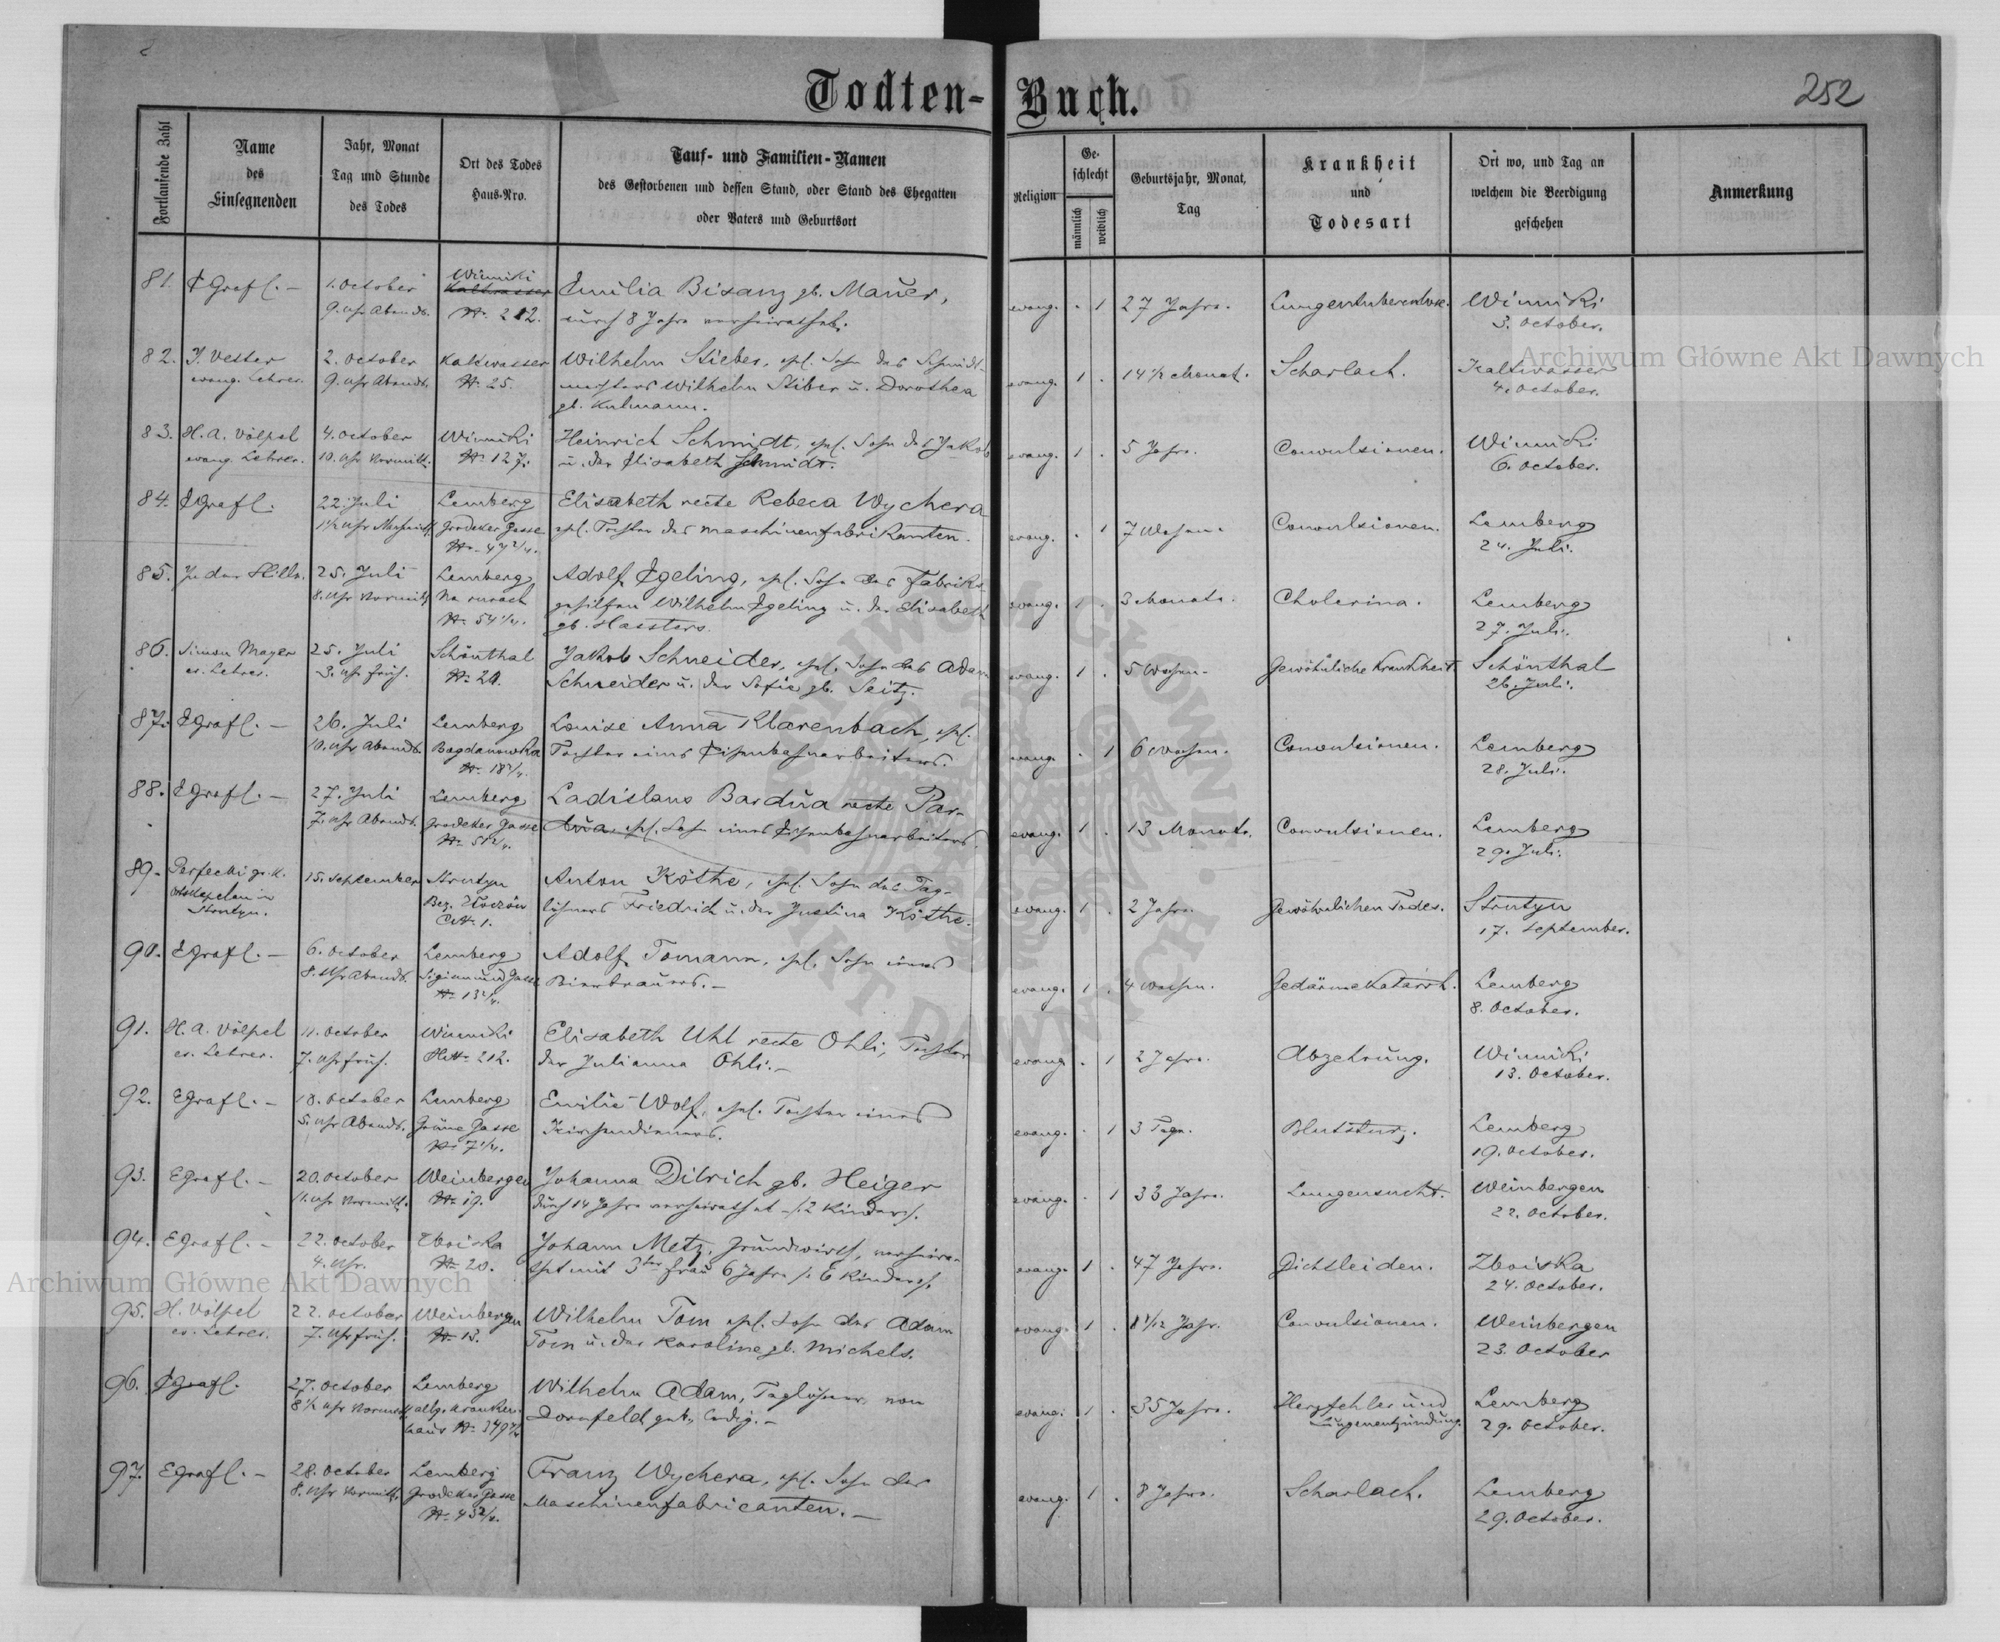 252
Todten-Buch.
Fortlaufende Zahl
Name
des
Einsegnenden
Jahr, Monat
Tag und Stunde
des Todes
Ort des Todes
Haus-Nro.
Tauf- und Familien-Namen
des Gestorbenen und dessen Stand, oder Stand des Ehegatten
oder Vaters und Geburtsort
Religion
Ge-
schlecht
männlich
weiblich
Geburtsjahr, Monat,
Tag
Krankheit
und
Todesart
Ort wo, und Tag an
welchem die Beerdigung
geschehen
Anmerkung
81. 1. October Winniki Emilia Bisanz gb. Mauer, evang. . 1 27 Jahre. Lungentuberculose. Winniki
9. Uhr Abends. Kaltwasser N. 212. durch 8 Jahre verheirathet. 3. October.
82. J. Vester 2. October Kaltwasser Wilhelm Stieber, ehl. Sohn des Schmidt- evang. 1 . 14 1/2 Monat. Scharlach. Kaltwasser
evang. Lehrer. 9. Uhr Abends. N. 25. meisters Wilhelm Stiber u. Dorothea 4. October.
gb. Kulmann.
83. H. A. Völpel 4. October Winniki Heinrich Schmidt, ehl. Sohn des Jakob evang. 1 . 5 Jahre. Convulsionen. Winniki
evang. Lehrer. 10. Uhr Vormitt. N. 127. u. der Elisabeth Schmidt. 6. October.
84. 22. Juli Lemberg Elisabeth recte Rebeca Wychera evang. . 1 7 Wochen. Convulsionen. Lemberg
Grodeker Gasse ehl. Tochter des Maschinenfabrikanten. 24. Juli.
85. 25. Juli Lemberg Adolf Egeling, ehl. Sohn des Fabriks- evang. 1 . 3 Monate. Cholerina. Lemberg
8. Uhr Vormitt. N. 54 1/4. gehilfen Wilhelm Egeling u. der Elisabeth 27. Juli.
86. Simon Mayer 25. Juli Schönthal Jakob Schneider, ehl. Sohn des Adam evang. 1 . 5 Wochen. Gewöhnliche Krankheit. Schönthal
ev. Lehrer. 3. Uhr früh. N. 21. Schneider u. der Sofie gb. Seitz. 26. Juli.
87. 26. Juli Lemberg Louise Anna Klarenbach, ehl. evang. . 1 6 Wochen. Convulsionen. Lemberg
10. Uhr Abends. Bogdanowka Tochter eines Eisenbahnarbeiters. 28. Juli.
N. 18 2/4.
88. 27. Juli Lemberg Ladislaus Bardua recte Par- evang. 1 . 13 Monate. Convulsionen. Lemberg
7. Uhr Abends. Grodeker Gasse dua, ehl. Sohn eines Eisenbahnarbeiters. 29. Juli.
89. 15. September Strutyn Anton Köthe, ehl. Sohn des Tag- evang. 1 . 2 Jahre. Gewöhnlichen Todes. Strutyn
Bez. Zloczów löhners Friedrich u. der Justina Köthe. 17. September.
CN. 1.
90. 6. October Lemberg Adolf Tomann, ehl. Sohn eines evang. 1 . 4 Wochen. Gedärmekatarrh. Lemberg
8. Uhr Abends. Sigismund Gasse Bierbrauers. 8. October.
N. 13 2/4.
91. H. A. Völpel 11. October Winniki Elisabeth Uhl recte Ohli, Tochter evang. . 1 2 Jahre. Abzehrung. Winniki
ev. Lehrer. 7. Uhr früh. HN. 212. der Julianna Ohli. 13. October.
92. 18. October Lemberg Emilie Wolf, ehl. Tochter eines evang. . 1 3 Tage. Blutsturz. Lemberg
5. Uhr Abends. Grüne Gasse Kirchendieners. 19. October.
93. 20. October Weinbergen Johanna Ditrich gb. Heiger evang. . 1 33 Jahre. Lungensucht. Weinbergen
11. Uhr Vormitt. N. 19. durch 14 Jahre verheirathet /:2 Kinder:/. 22. October.
94. 22. October Zboiska Johann Metz, Grundwirth, verheira- evang. 1 . 47 Jahre. Gichtleiden. Zboiska
4. Uhr. N. 20. thet mit 3ter Frau 6 Jahre /: 6 Kinder:/. 24. October.
95. H. Völpel 22. October Weinbergen Wilhelm Tom ehl. Sohn des Adam evang. 1 . 8 1/12 Jahr. Convulsionen. Weinbergen
ev. Lehrer. 7. Uhr früh. N. 13. Tom u. der Karoline gb. Michels. 23. October
96. 27. October Lemberg Wilhelm Adam, Taglöhner, von evang. 1 . 35 Jahre. Herzfehler und Lemberg
8 1/2 Uhr Vormitt. allg. Kranken- Dornfeld geb., ledig. Lungenentzündung. 29. October.
haus
97. 28. October Lemberg Franz Wychera, ehl. Sohn des evang. 1 . 8 Jahre. Scharlach. Lemberg
8. Uhr Vormitt. Grodeker Gasse Maschinenfabricanten. 29. October.
Archiwum Główne Akt Dawnych
Archiwum Główne Akt Dawnych
ARCHIWUM GŁÓWNE AKT DAWNYCH